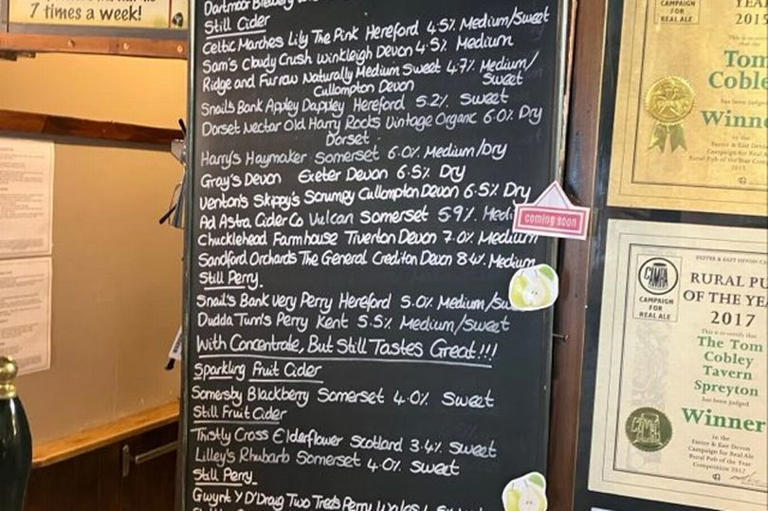 7 times a week!
Dartmoor Brewery
Still Cider
Celtic Marches Lily The Pink Hereford 4.5% Medium/Sweet
Sam's Cloudy Crush Winkleigh Devon 4.5% Medium
Ridge and Furrow Naturally Medium Sweet 4.7% Medium/
Cullompton Devon Sweet
Snails Bank Appley Dappley Hereford 5.2% Sweet
Dorset Nectar Old Harry Rocks Vintage Organic 6.0% Dry
Dorset
Harry's Haymaker Somerset 6.0% Medium/Dry
Gray's Devon Exeter Devon 6.5% Dry
Venton's Skippy's Scrumpy Cullompton Devon 6.5% Dry
Ad Astra Cider Co Vulcan Somerset 5.9% Medi
Chucklehead Farmhouse Tiverton Devon 7.0% Medium
Sandford Orchards The General Crediton Devon 8.4% Medium
Still Perry
Snail's Bank Very Perry Hereford 5.0% Medium/Sw
Dudda Tun's Perry Kent 5.5% Medium/Sweet
With Concentrate, But Still Tastes Great!!!
Sparkling Fruit Cider
Somersby Blackberry Somerset 4.0% Sweet
Still Fruit Cider
Thistly Cross Elderflower Scotland 3.4% Sweet
Lilley's Rhubarb Somerset 4.0% Sweet
Still Perry
Gwynt Y D'Draig Two Trees Perry Wales
coming soon
CAMPAIGN
FOR
REAL ALE
2015
Tom
Cobley
Winne
CAMPAIGN
FOR
REAL ALE
RURAL PU
OF THE YEA
2017
This is to certify that
The Tom
Cobley
Tavern
Spreyton
has been judged
Winner
in the
Exeter & East Devon
Campaign for Real Ale
Rural Pub of the Year